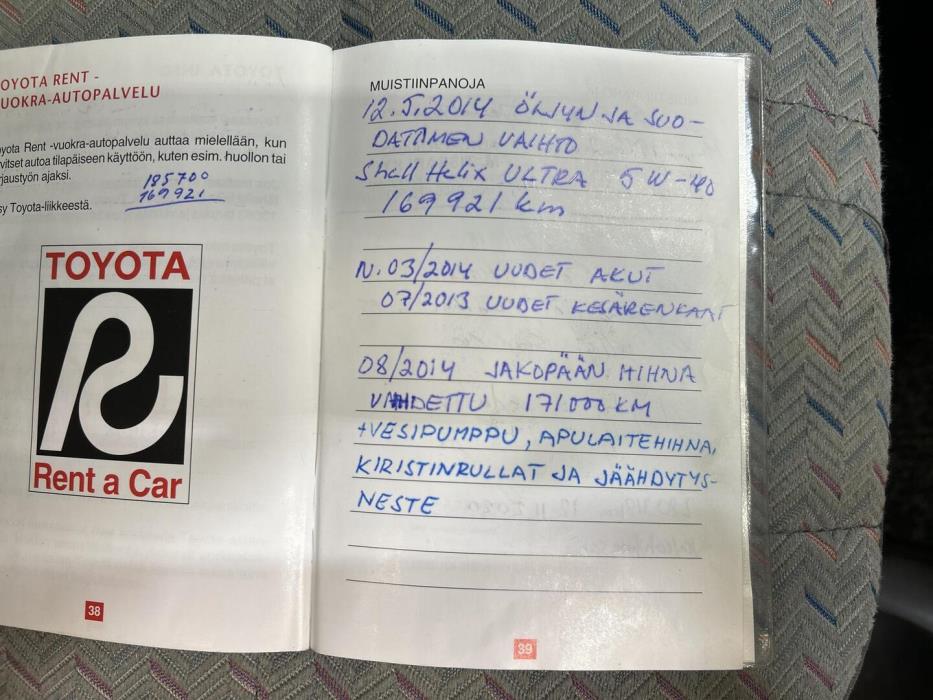 OYOTA RENT -
UOKRA-AUTOPALVELU
oyota Rent -vuokra-autopalvelu auttaa mielellään, kun
rvitset autoa tilapäiseen käyttöön, kuten esim. huollon tai
rjaustyön ajaksi.
sy Toyota-liikkeestä.
195700
169921
TOYOTA
Rent a Car
38
MUISTIINPANOJA
12.5.2014 ÖLJYN JA SUO-
DATTIMEN VAIHTO
Shell Helix ULTRA 5W-40
169921 km
N. 03/2014 UUDET AKUT
07/2013 UUDET KESÄRENKAAT
08/2014 JAKOPÄÄN HIHNA
VAIHDETTU 171000 KM
+VESIPUMPPU, APULAITEHIHNA,
KIRISTINRULLAT JA JÄÄHDYTYS-
NESTE
39